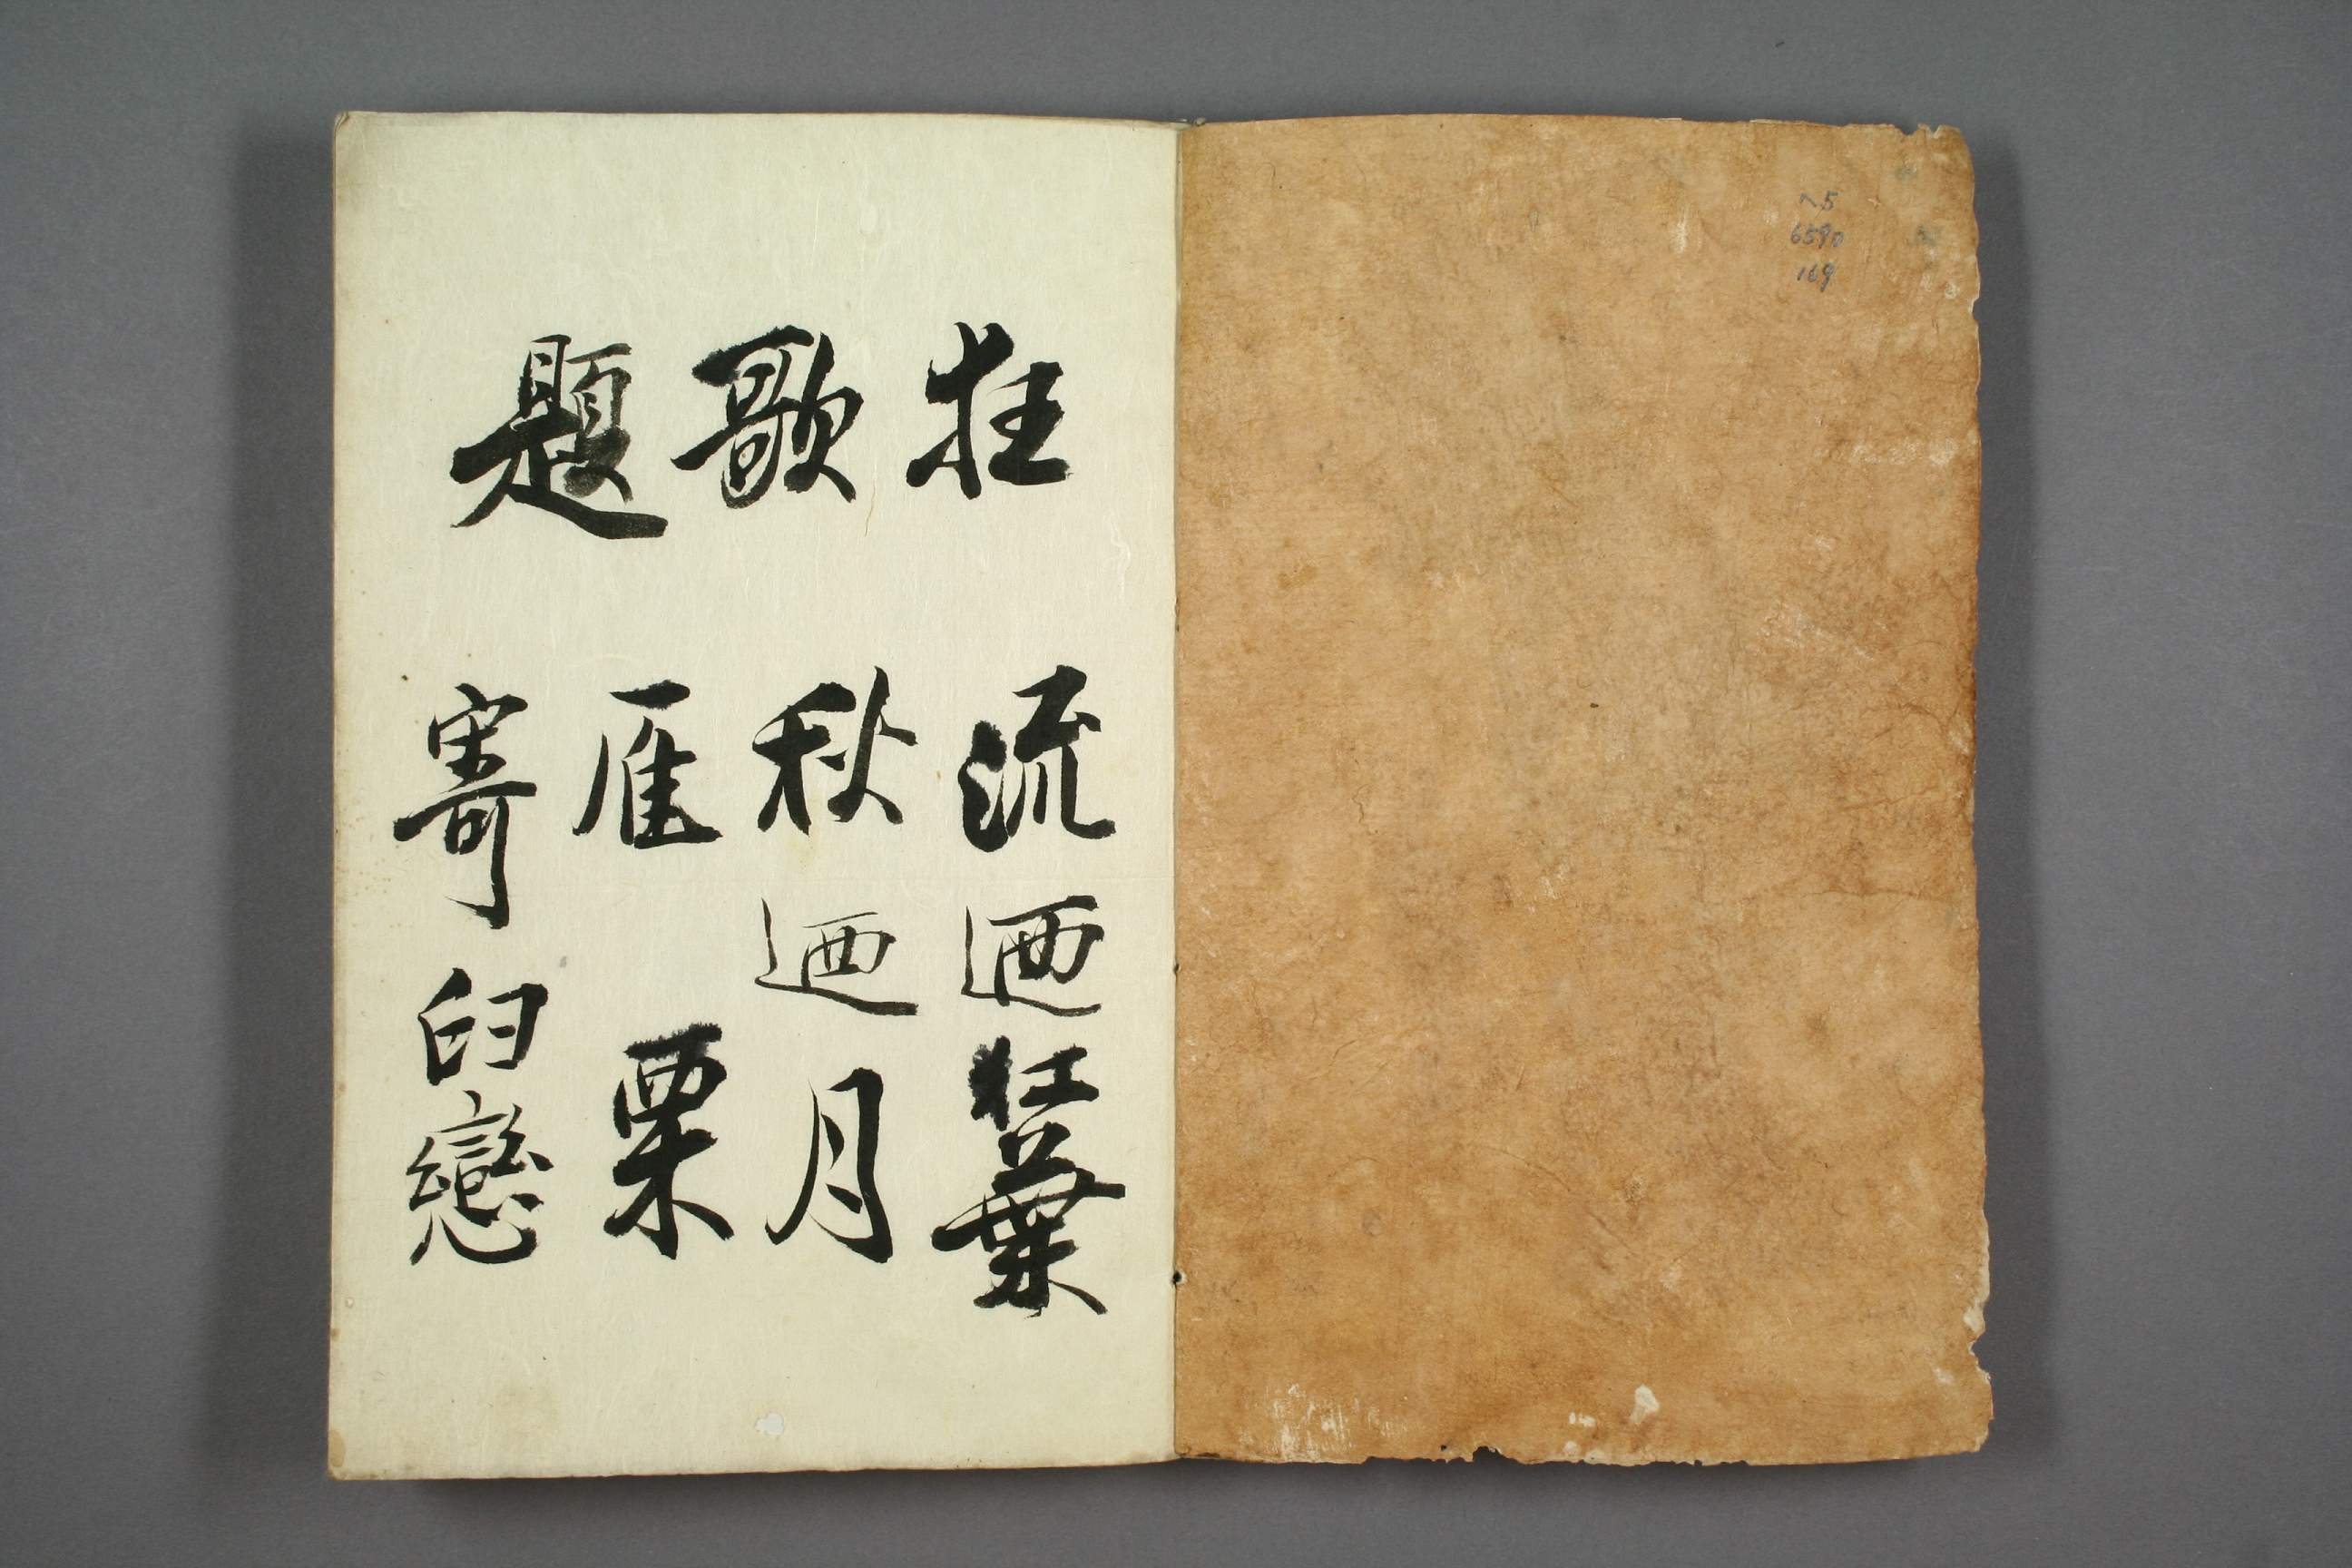 へ5
6590
169
狂歌題
流廼紅葉
秋廼月
雁 栗
寄臼戀